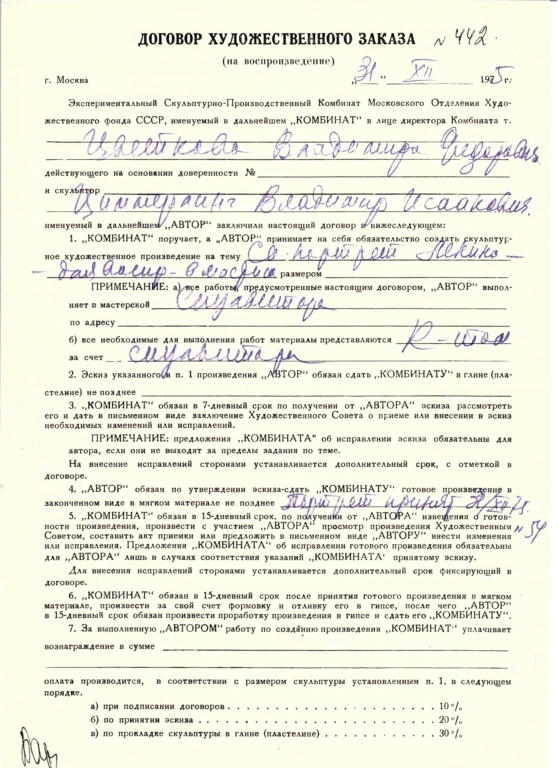 ДОГОВОР ХУДОЖЕСТВЕННОГО ЗАКАЗА № 442.
(на воспроизведение)
г. Москва „31" XII 1975 г.
Экспериментальный Скульптурно-Производственный Комбинат Московского Отделения Худо-
жественного фонда СССР, именуемый в дальнейшем „КОМБИНАТ" в лице директора Комбината т.
Цветкова Владимира Федоровича
действующего на основании доверенности №
и скульптор
Циммерлинг Владимир Исаакович.
именуемый в дальнейшем „АВТОР" заключили настоящий договор в нижеследующем:
1. „КОМБИНАТ" поручает, а „АВТОР" принимает на себя обязательство создать скульптур-
ное художественное произведение на тему портрет
размером
ПРИМЕЧАНИЕ: а) все работы, предусмотренные настоящим договором, „АВТОР" выпол-
няет в мастерской скульптора
по адресу
б) все необходимые для выполнения работ материалы представляются К-том
за счет скульптора
2. Эскиз указанного в п. 1 произведения „АВТОР" обязан сдать „КОМБИНАТУ" в глине (пла-
стелине) не позднее
3. „КОМБИНАТ" обязан в 7-дневный срок по получении от „АВТОРА" эскиза рассмотреть
его и дать в письменном виде заключение Художественного Совета о приеме или внесении в эскиз
необходимых изменений или исправлений.
ПРИМЕЧАНИЕ: предложения „КОМБИНАТА" об исправлении эскиза обязательны для
автора, если они не выходят за пределы задания по теме.
На внесение исправлений сторонами устанавливается дополнительный срок, с отметкой в
договоре.
4. „АВТОР" обязан по утверждении эскиза-сдать „КОМБИНАТУ" готовое произведение в
законченном виде в мягком материале не позднее Портрет принят 31/XII 75.
5. „КОМБИНАТ" обязан в 15-дневный срок, по получении от „АВТОРА" извещения о готов-
ности произведения, произвести с участием „АВТОРА" просмотр произведения Художественным № 54
Советом, составить акт приемки или предложить в письменном виде „АВТОРУ" внести изменения
или исправления. Предложения „КОМБИНАТА" об исправлении готового произведения обязательны
для „АВТОРА" лишь в случаях соответствия указаний „КОМБИНАТА" принятому эскизу.
Для внесения исправлений сторонами устанавливается дополнительный срок фиксирующий в
договоре.
6. „КОМБИНАТ" обязан в 15-дневный срок после принятия готового произведения в мягком
материале, произвести за свой счет формовку и отливку его в гипсе, после чего „АВТОР"
в 15-дневный срок обязан произвести проработку произведения в гипсе и сдать его „КОМБИНАТУ".
7. За выполненную „АВТОРОМ" работу по созданию произведения „КОМБИНАТ" уплачивает
вознаграждение в сумме
оплата производится, в соответствии с размером скульптуры установленным п. 1, в следующем
порядке.
а) при подписании договоров 10%
б) по принятии эскиза 20%
в) по прокладке скульптуры в глине (пластелине) 30%